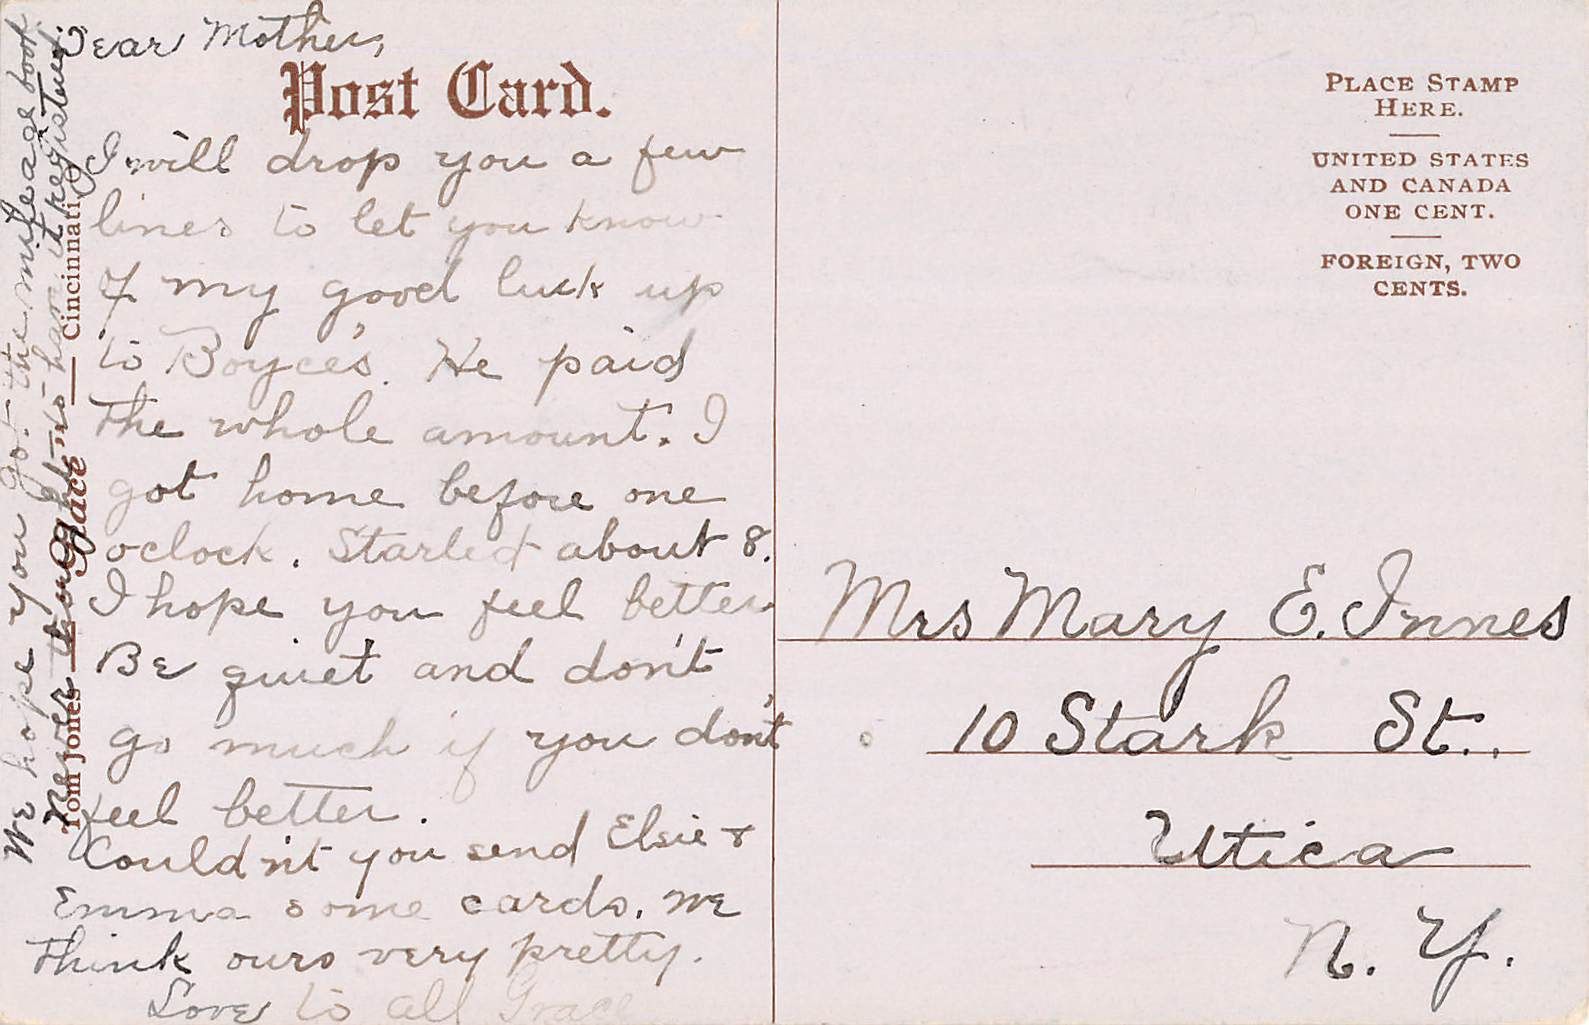 Dear Mother,
Post Card.
I will drop you a few
lines to let you know
of my good luck up
to Boyce's. He paid
the whole amount. I
got home before one
oclock. Started about 8.
I hope you feel better
Be quiet and don't
go much if you don't
feel better.
Couldn't you send Elsie &
Emma some cards. We
think ours very pretty.
Love to all Grace
We hope you got the mileage book.
Never thought to have it registered.
Tom Jones Cincinnati, O.
Grace
PLACE STAMP
HERE.
UNITED STATES
AND CANADA
ONE CENT.
FOREIGN, TWO
CENTS.
Mrs Mary E. Innes
10 Stark St.
Utica
N. Y.